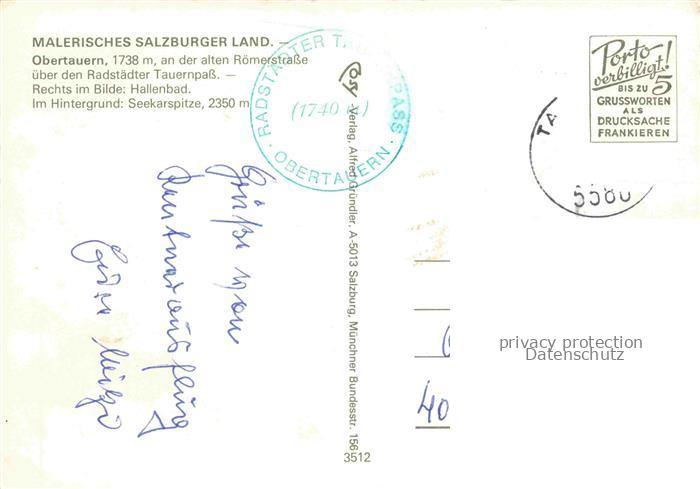 MALERISCHES SALZBURGER LAND. —
Obertauern, 1738 m, an der alten Römerstraße
über den Radstädter Tauernpaß. —
Rechts im Bilde: Hallenbad.
Im Hintergrund: Seekarspitze, 2350 m
RADSTÄDTER TAUERNPASS
(1740 m)
· OBERTAUERN ·
Verlag, Alfred Gründler, A-5013 Salzburg, Münchner Bundesstr. 156
3512
Porto
verbilligt!
BIS ZU 5
GRUSSWORTEN
ALS
DRUCKSACHE
FRANKIEREN
TA
5580
Grüße von
Rentnerausflug
40
privacy protection
Datenschutz